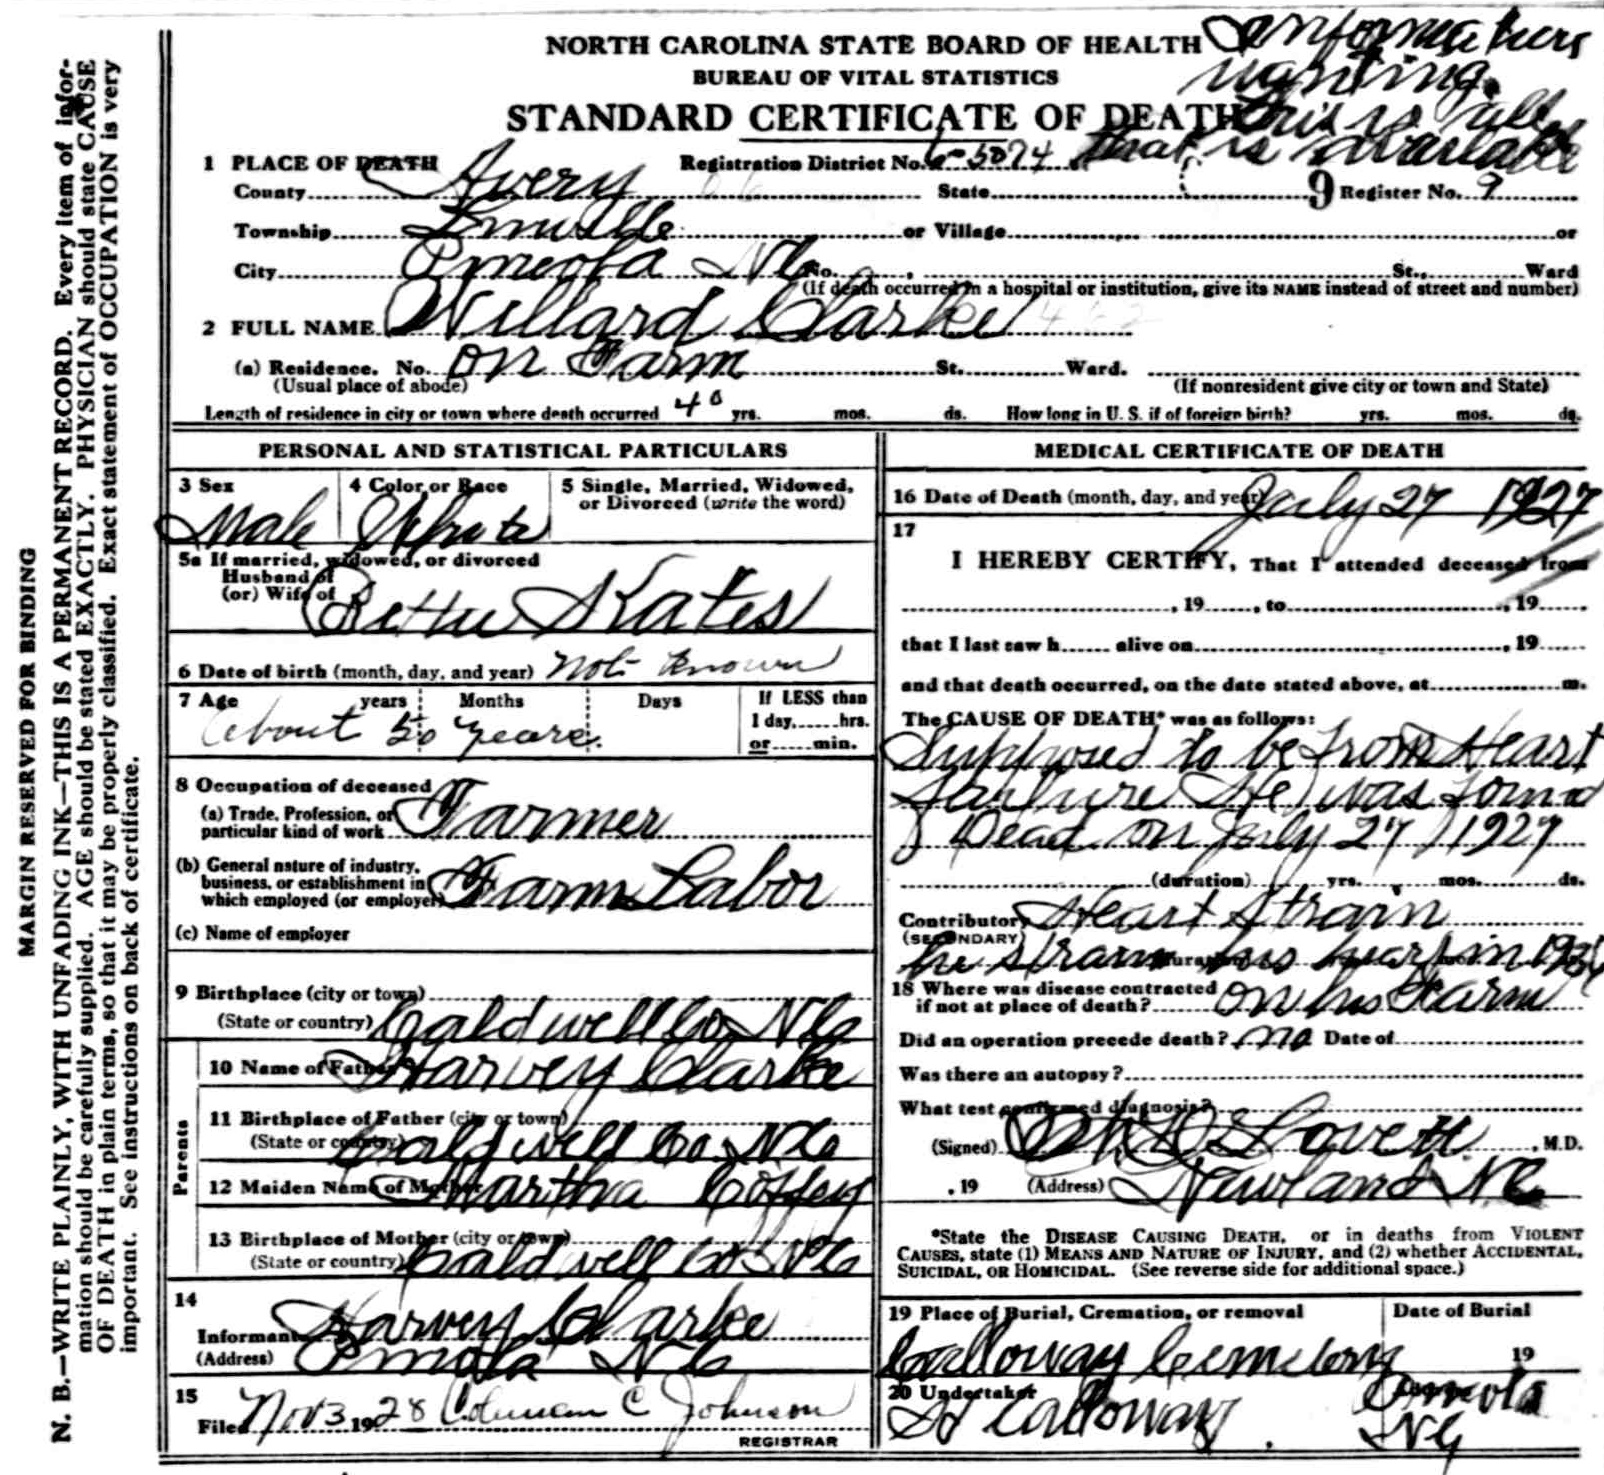 NORTH CAROLINA STATE BOARD OF HEALTH
BUREAU OF VITAL STATISTICS
STANDARD CERTIFICATE OF DEATH
wanting.
this is all
that is available
1 PLACE OF DEATH
Registration District No. 6-5074
County Avery State 9 Register No. 9
Township Linville or Village or
City Pineola NC No. , St., Ward
(If death occurred in a hospital or institution, give its NAME instead of street and number)
2 FULL NAME Willard Clarke
(a) Residence. No. On Farm St. Ward.
(Usual place of abode) (If nonresident give city or town and State)
Length of residence in city or town where death occurred 40 yrs. mos. ds. How long in U. S. if of foreign birth? yrs. mos. ds.
PERSONAL AND STATISTICAL PARTICULARS
3 Sex Male
4 Color or Race White
5 Single, Married, Widowed, or Divorced (write the word)
5a If married, widowed, or divorced
Husband of
(or) Wife of
6 Date of birth (month, day, and year) Not Known
7 Age years Months Days
about 50 years
If LESS than
1 day, hrs.
or min.
8 Occupation of deceased
(a) Trade, Profession, or
particular kind of work Farmer
(b) General nature of industry,
business, or establishment in
which employed (or employer) Farm Labor
(c) Name of employer
9 Birthplace (city or town)
(State or country) Caldwell Co NC
Parents
10 Name of Father Harvey Clarke
11 Birthplace of Father (city or town)
(State or country) Caldwell Co. NC
12 Maiden Name of Mother Martha Coffey
13 Birthplace of Mother (city or town)
(State or country) Caldwell Co NC
14
Informant Harvey Clarke
(Address) Pineola NC
15
Filed Nov 3 1928 Coleman C Johnson
REGISTRAR
MEDICAL CERTIFICATE OF DEATH
16 Date of Death (month, day, and year) July 27 1927
17
I HEREBY CERTIFY, That I attended deceased from
, 19 , to , 19
that I last saw h alive on , 19
and that death occurred, on the date stated above, at m.
The CAUSE OF DEATH* was as follows:
Supposed to be from Heart
Failure He was Found
Dead on July 27 1927
(duration) yrs. mos. ds.
Contributory Heart Strain
(SECONDARY)
he strain his heart in
18 Where was disease contracted
if not at place of death? on his Farm
Did an operation precede death? no Date of
Was there an autopsy?
What test confirmed diagnosis?
(Signed) Lovett , M.D.
, 19 (Address) Newland NC
*State the DISEASE CAUSING DEATH, or in deaths from VIOLENT
CAUSES, state (1) MEANS AND NATURE OF INJURY, and (2) whether ACCIDENTAL,
SUICIDAL, OR HOMICIDAL. (See reverse side for additional space.)
19 Place of Burial, Cremation, or removal
Calloway Cemetery
Date of Burial
19
20 Undertaker
Calloway
Pineola
NC
MARGIN RESERVED FOR BINDING
N. B.—WRITE PLAINLY, WITH UNFADING INK—THIS IS A PERMANENT RECORD. Every item of infor-
mation should be carefully supplied. AGE should be stated EXACTLY. PHYSICIAN should state CAUSE
OF DEATH in plain terms, so that it may be properly classified. Exact statement of OCCUPATION is very
important. See instructions on back of certificate.